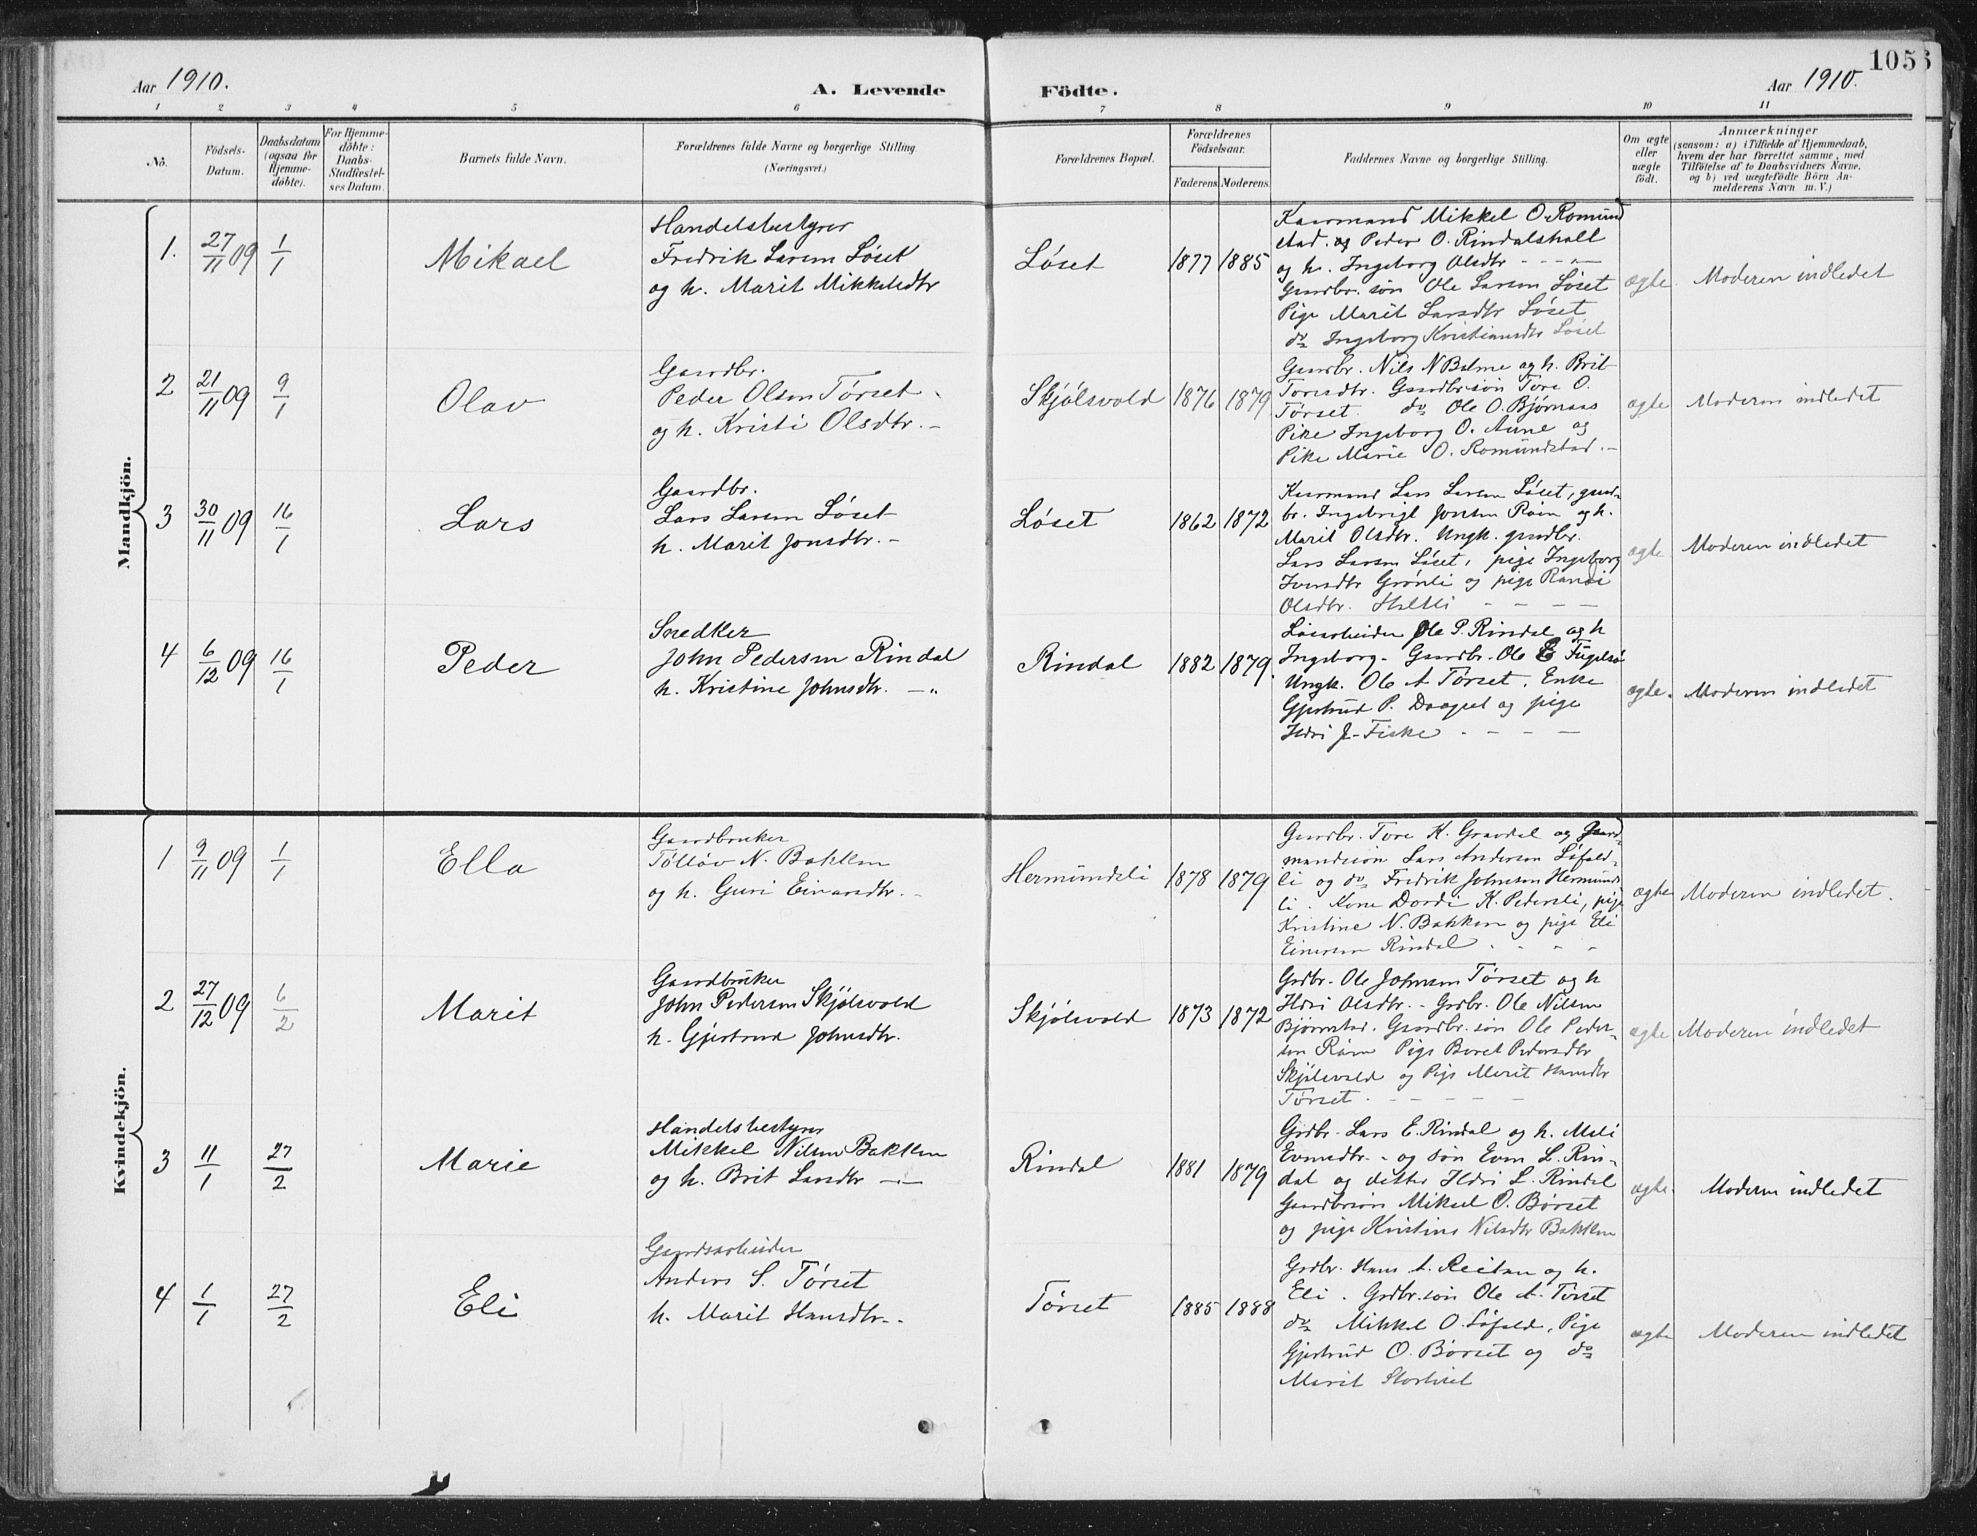 Aar 1910.
A. Levende
Födte.
Aar 1910.
105
1 2 3 4 5 6 7 8 9 10 11
Nô.
Födsels-
Datum.
Daabsdatum
(ogsaa for
Hjemme-
döbte).
For Hjemme-
döbte:
Daabs-
Stadfæstel-
ses Datum.
Barnets fulde Navn.
Forældrenes fulde Navne og borgerlige Stilling
(Næringsvei.)
Forældrenes Bopæl.
Forældrenes
Födselsaar.
Faderens. Moderens.
Faddernes Navne og borgerlige Stilling.
Om ægte
eller
uægte
födt.
Anmærkninger
(saasom: a) i Tilfælde af Hjemmedaab,
hvem der har forrettet samme, med
Tilföielse af to Daabsvidners Navne,
og b) ved uægtefödte Börn An-
melderens Navn m. V.)
Mandkjön.
1. 27/11 09 1/1
Mikael
Handelsbestyrer
Fredrik Larsen Løset
og h. Marit Mikkelsdtr
Løset
1877 1885
Kaarmand Mikkel O. Romund
stad. og Peder O. Rindalshall
og h. Ingeborg Olsdtr - - - -
Gaardbr. søn Ole Larsen Løset
Pige Marit Larsdtr Løset
do Ingeborg Kristiansdtr Løset
ægte
Moderen indledet
2 21/11 09 9/1
Olav
Gaardbr.
Peder Olsen Tørset
og h. Kristi Olsdtr. -
Skjølsvold
1876 1879
Gaardbr. Nils N Bolme og h. Brit
Toresdtr. Gaardbr.søn Tore O.
Tørset. do Ole O. Bjørnaas
Pike Ingeborg O. Aune og
Pike Marie O. Romundstad. -
ægte
Moderen indledet
3 30/11 09 16/1
Lars
Gaardbr.
Lars Larsen Løset
h. Marit Jonsdtr. -
Løset
1862 1872
Kaarmand Lars Larsen Løset, gaard-
br. Ingebrigt Jonsen Røen og h.
Marit Olsdtr. Ungk. gaardbr.
Lars Larsen Løset, pige Ingeborg
Iversdtr Grønli og pige Randi
Olsdtr. Holtli - - - -
ægte
Moderen indledet
4 6/12 09 16/1
Peder
Snedker
John Pedersen Rindal
h. Kristine Johnsdtr. -"
Rindal
1882 1879
Løsarbeider Ole P. Rindal og h
Ingeborg - Gaardbr. Ole E Fugelsø
Ungk. Ole A Tørset. Enke
Gjertrud P. Daaset og pige
Ildri J. Fiske - - - -
ægte.
Moderen indledet
Kvindekjön.
1 9/11 09 1/1
Ella
Gaardbruker
Tølløv N. Bakken
og h. Guri Einarsdtr. -
Hermundsli
1878 1879
Gaardbr. Tore K. Gravdal og Gaard-
mandssøn Lars Andersen Løfald-
li og do Fredrik Johnsen Hermunds
li. Kone Dordi K. Pedersli, pige
Kristine N. Bakken og pige Eli
Einarsen Rindal - - - -
ægte
Moderen indledet.
2 27/12 09 6/2
Marit
Gaardbruker
John Pedersen Skjølsvold
h. Gjertrud Johnsdtr.
Skjølsvold
1873 1872
Grdbr. Ole Johnsen Tørset og h
Ildri Olsdtr. - Grdbr. Ole Nilsen
Bjørnstad. Gaardbr. søn Ole Peder-
sen Røen Pige Beret Pedersdtr
Skjølsvold og Pige Marit Hansdtr
Tørset. - - - - -
ægte
Moderen indledet
3 11/1 27/2
Marie
Handelsbestyrer
Mikkel Nilsen Bakken
og h. Brit Larsdtr -"-
Rindal
1881 1879
Grdbr. Lars E. Rindal og h. Mali
Evensdtr. - og søn Even L. Rin-
dal og datter Ildri L. Rindal
Gaardbrsøn Mikael O. Børset
og pige Kristine Nilsdtr Bakken
ægte.
Moderen indledet
4 1/1 27/2
Eli
Gaardsarbeider
Anders S. Tørset
h. Marit Hansdtr -.
Tørset
1885 1888
Grdbr. Hans A. Reitan og h.
Eli. Grdbr.søn Ole A. Tørset
do Mikkel O. Løfald, Pige
Gjertrud O. Børset og do
Marit Storholt
ægte
Moderen indledet